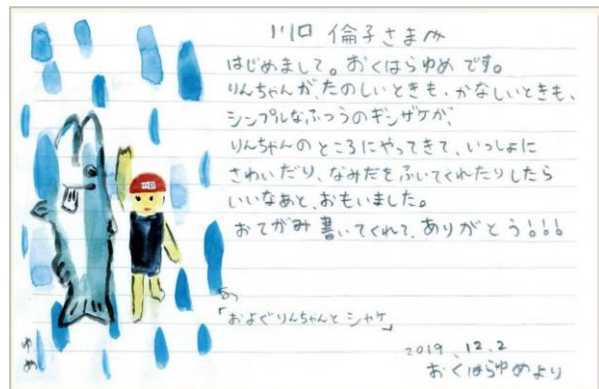 川口 倫子さまへ
はじめまして。おくはらゆめです。
りんちゃんが、たのしいときも・かなしいときも、
シンプルなふつうのギンザケが、
りんちゃんのところにやってきて、いっしょに
さわいだり、なみだをふいてくれたりしたら
いいなあと、おもいました。
おてがみ書いてくれて、ありがとう!!!
「およぐりんちゃんとシャケ」
2019.12.2
おくはらゆめより
川口
ゆめ